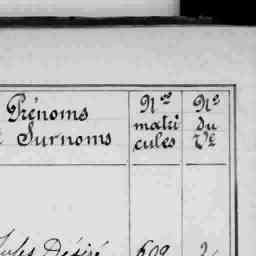 Prénoms
Surnoms
Nos
matri
cules
No
du
Vt
Jules Désiré 609